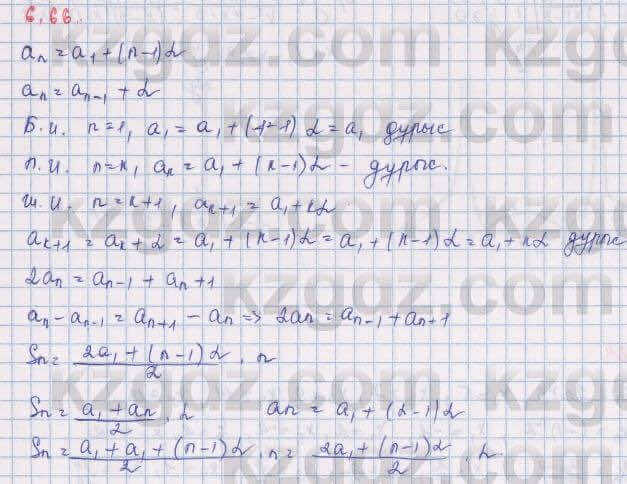 6.66.
aₙ = a₁ + (n-1)d
aₙ = aₙ₋₁ + d
Б.и. n=1, a₁ = a₁ + (1-1)d = a₁ дұрыс
П.и. n=k, aₖ = a₁ + (k-1)d - дұрыс.
и.и. n=k+1, aₖ₊₁ = a₁ + kd
aₖ₊₁ = aₖ + d = a₁ + (k-1)d = a₁ + (k-1)d = a₁ + kd дұрыс
2aₙ = aₙ₋₁ + aₙ+1
aₙ - aₙ₋₁ = aₙ₊₁ - aₙ => 2aₙ = aₙ₋₁ + aₙ₊₁
Sₙ = (2a₁ + (n-1)d)/2 · n
Sₙ = (a₁ + aₙ)/2 · n aₙ = a₁ + (d-1)d
Sₙ = (a₁ + a₁ + (n-1)d)/2 · n = (2a₁ + (n-1)d)/2 · n
kzgdz.com